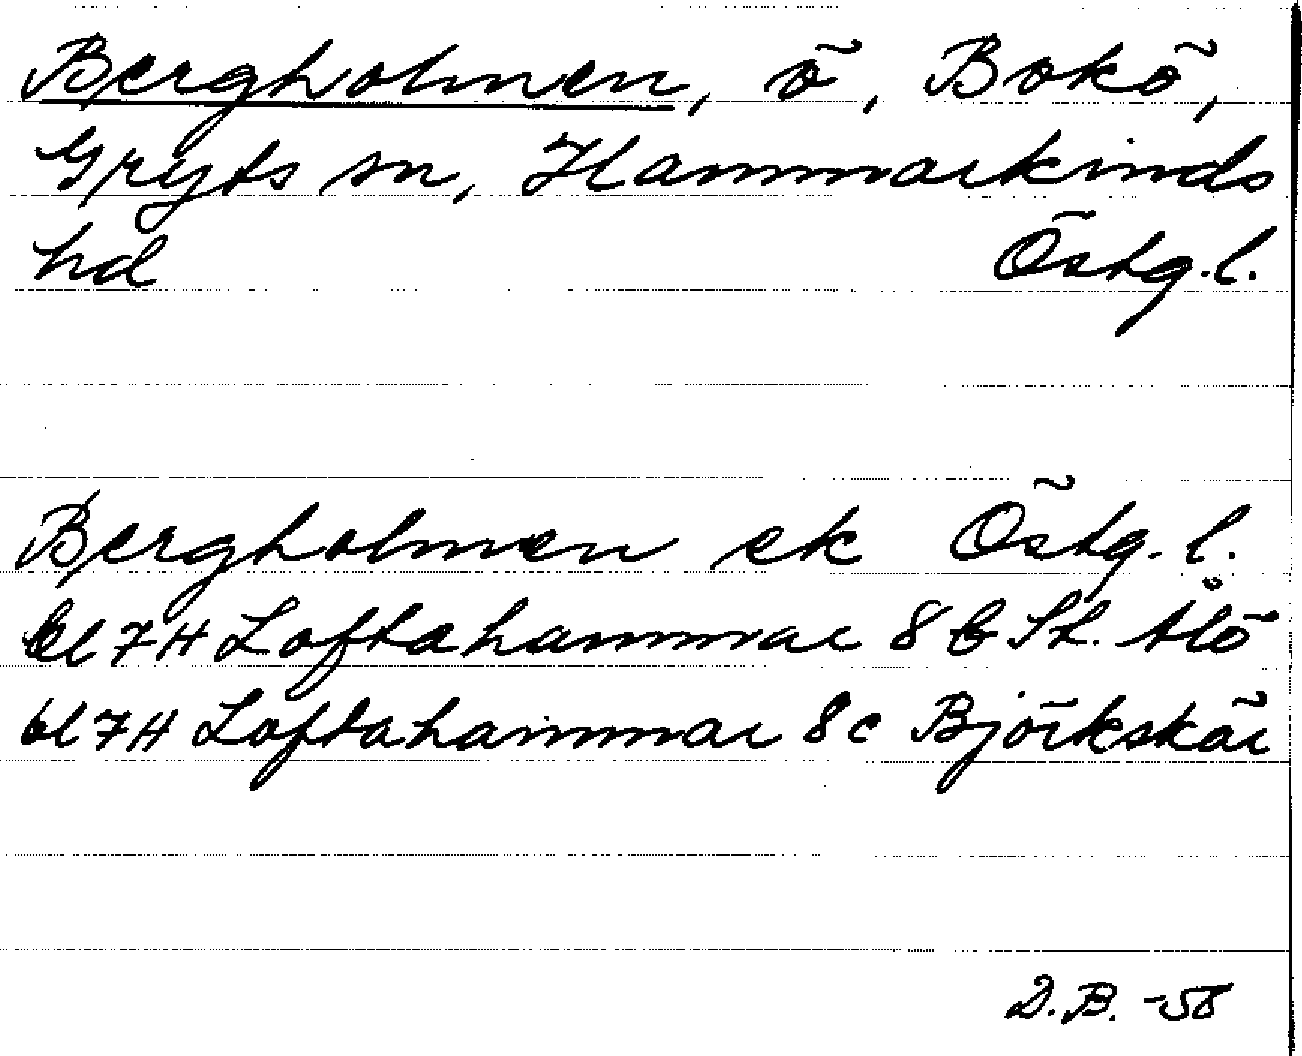 Bergholmen, ö, Bokö,
Gryts sn, Hammarkinds
hd Östg.l.
Bergholmen ek Östg. l.
bl 7H Loftahammar 8 b St. Ålö
bl 7H Loftahammar 8c Björkskär
D.B. -58